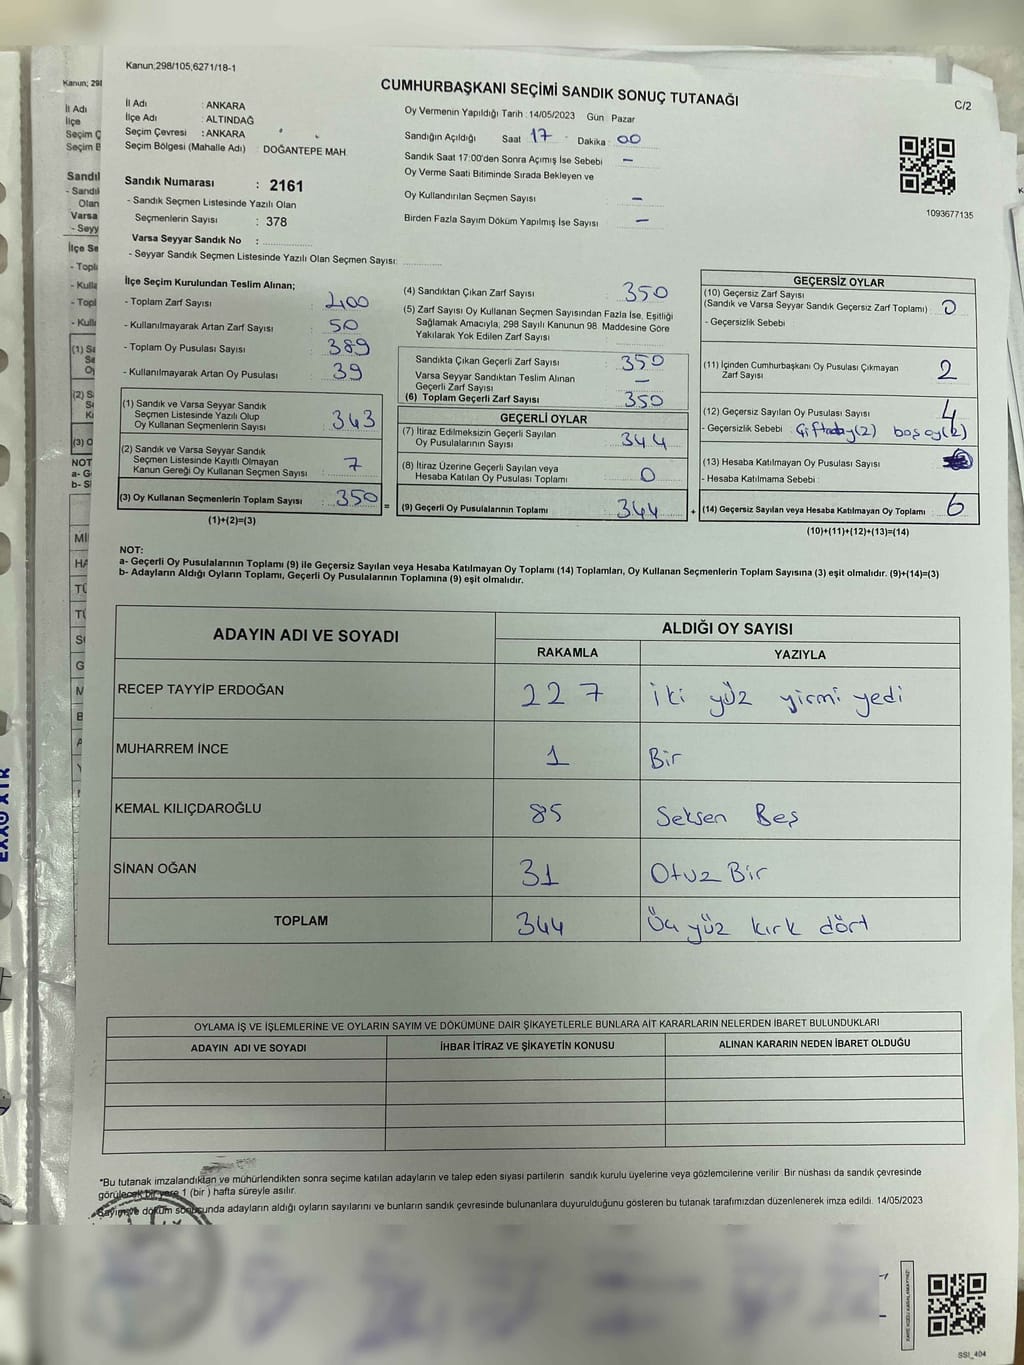 Kanun;298/105,6271/18-1
CUMHURBAŞKANI SEÇİMİ SANDIK SONUÇ TUTANAĞI
C/2
İl Adı : ANKARA
İlçe Adı : ALTINDAĞ
Seçim Çevresi : ANKARA
Seçim Bölgesi (Mahalle Adı) : DOĞANTEPE MAH.
Sandık Numarası : 2161
- Sandık Seçmen Listesinde Yazılı Olan
Seçmenlerin Sayısı : 378
Varsa Seyyar Sandık No :
- Seyyar Sandık Seçmen Listesinde Yazılı Olan Seçmen Sayısı:
Oy Vermenin Yapıldığı Tarih : 14/05/2023 Gün Pazar
Sandığın Açıldığı Saat 17 Dakika 00
Sandık Saat 17:00'den Sonra Açımış İse Sebebi –
Oy Verme Saati Bitiminde Sırada Bekleyen ve
Oy Kullandırılan Seçmen Sayısı –
Birden Fazla Sayım Döküm Yapılmış İse Sayısı –
1093677135
İlçe Seçim Kurulundan Teslim Alınan;
- Toplam Zarf Sayısı : 400
- Kullanılmayarak Artan Zarf Sayısı : 50
- Toplam Oy Pusulası Sayısı : 389
- Kullanılmayarak Artan Oy Pusulası : 39
(1) Sandık ve Varsa Seyyar Sandık
Seçmen Listesinde Yazılı Olup
Oy Kullanan Seçmenlerin Sayısı : 343
(2) Sandık ve Varsa Seyyar Sandık
Seçmen Listesinde Kayıtlı Olmayan
Kanun Gereği Oy Kullanan Seçmen Sayısı : 7
(3) Oy Kullanan Seçmenlerin Toplam Sayısı : 350
(1)+(2)=(3)
(4) Sandıktan Çıkan Zarf Sayısı : 350
(5) Zarf Sayısı Oy Kullanan Seçmen Sayısından Fazla İse, Eşitliği
Sağlamak Amacıyla; 298 Sayılı Kanunun 98. Maddesine Göre
Yakılarak Yok Edilen Zarf Sayısı :
Sandıkta Çıkan Geçerli Zarf Sayısı : 350
Varsa Seyyar Sandıktan Teslim Alınan
Geçerli Zarf Sayısı : –
(6) Toplam Geçerli Zarf Sayısı : 350
GEÇERLİ OYLAR
(7) İtiraz Edilmeksizin Geçerli Sayılan
Oy Pusulalarının Sayısı : 344
(8) İtiraz Üzerine Geçerli Sayılan veya
Hesaba Katılan Oy Pusulası Toplamı : 0
= (9) Geçerli Oy Pusulalarının Toplamı : 344
GEÇERSİZ OYLAR
(10) Geçersiz Zarf Sayısı
(Sandık ve Varsa Seyyar Sandık Geçersiz Zarf Toplamı) : 0
- Geçersizlik Sebebi
(11) İçinden Cumhurbaşkanı Oy Pusulası Çıkmayan
Zarf Sayısı : 2
(12) Geçersiz Sayılan Oy Pusulası Sayısı : 4
- Geçersizlik Sebebi : Çift aday(2) boş oy(2)
(13) Hesaba Katılmayan Oy Pusulası Sayısı :
- Hesaba Katılmama Sebebi :
+ (14) Geçersiz Sayılan veya Hesaba Katılmayan Oy Toplamı : 6
(10)+(11)+(12)+(13)=(14)
NOT:
a- Geçerli Oy Pusulalarının Toplamı (9) ile Geçersiz Sayılan veya Hesaba Katılmayan Oy Toplamı (14) Toplamları, Oy Kullanan Seçmenlerin Toplam Sayısına (3) eşit olmalıdır. (9)+(14)=(3)
b- Adayların Aldığı Oyların Toplamı, Geçerli Oy Pusulalarının Toplamına (9) eşit olmalıdır.
ADAYIN ADI VE SOYADI ALDIĞI OY SAYISI
RAKAMLA YAZIYLA
RECEP TAYYİP ERDOĞAN 227 iki yüz yirmi yedi
MUHARREM İNCE 1 Bir
KEMAL KILIÇDAROĞLU 85 Seksen Beş
SİNAN OĞAN 31 Otuz Bir
TOPLAM 344 Üç yüz kırk dört
OYLAMA İŞ VE İŞLEMLERİNE VE OYLARIN SAYIM VE DÖKÜMÜNE DAİR ŞİKAYETLERLE BUNLARA AİT KARARLARIN NELERDEN İBARET BULUNDUKLARI
ADAYIN ADI VE SOYADI İHBAR İTİRAZ VE ŞİKAYETİN KONUSU ALINAN KARARIN NEDEN İBARET OLDUĞU
*Bu tutanak imzalandıktan ve mühürlendikten sonra seçime katılan adayların ve talep eden siyasi partilerin sandık kurulu üyelerine veya gözlemcilerine verilir. Bir nüshası da sandık çevresinde
görülecek bir yere 1 (bir ) hafta süreyle asılır.
Sayım ve döküm sonucunda adayların aldığı oyların sayılarını ve bunların sandık çevresinde bulunanlara duyurulduğunu gösteren bu tutanak tarafımızdan düzenlenerek imza edildi. 14/05/2023
SSI_404